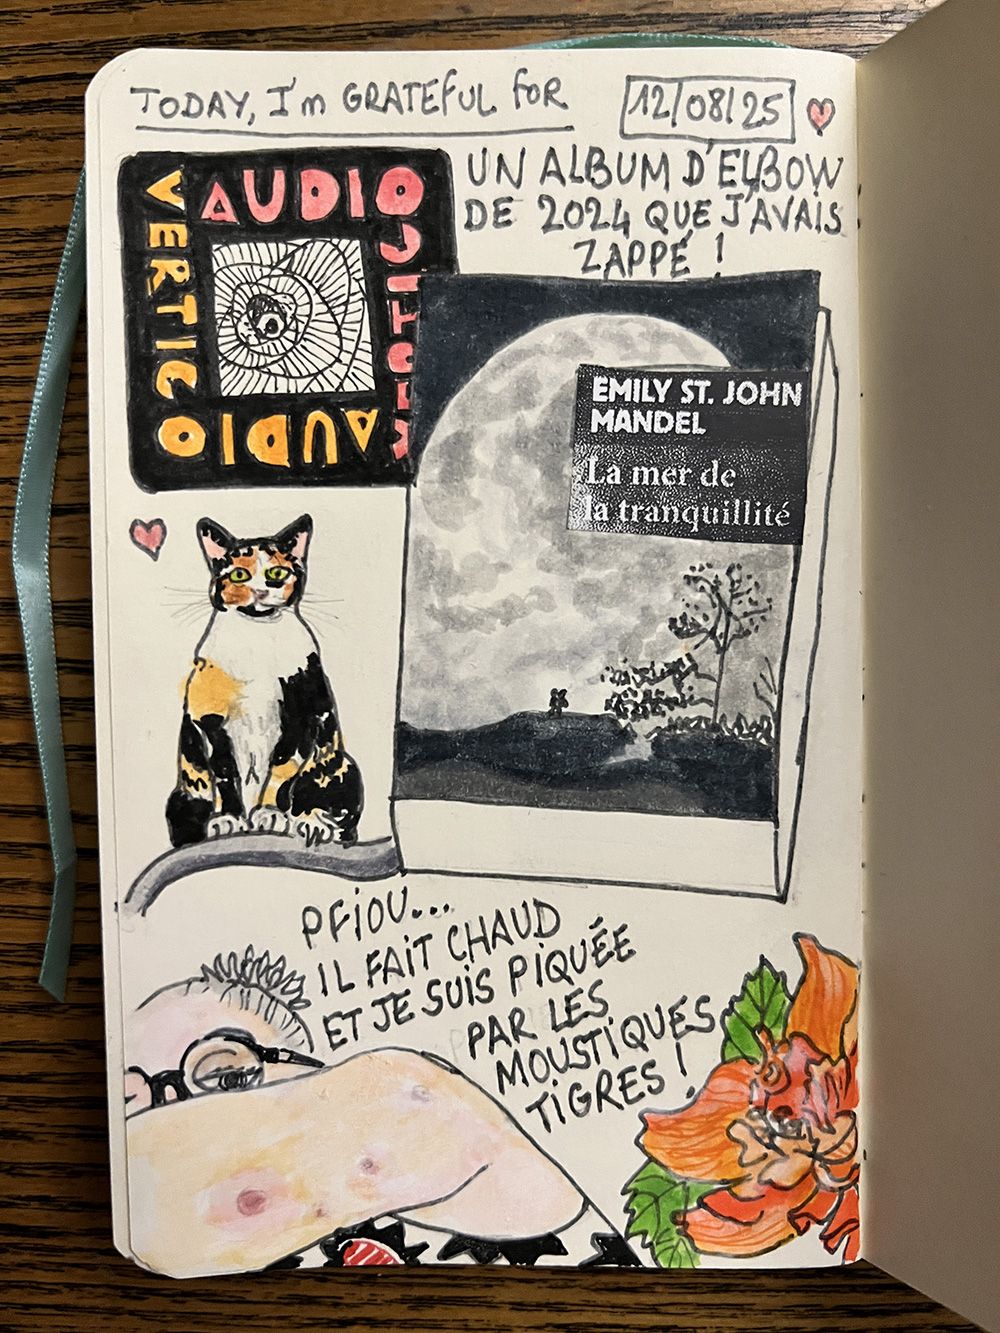 TODAY, I'm GRATEFUL FOR
12/08/25
UN ALBUM D'ELBOW
DE 2024 QUE J'AVAIS
ZAPPÉ !
AUDIO
VERTIGO
AUDIO
EMILY ST. JOHN
MANDEL
La mer de
la tranquillité
PFIOU...
IL FAIT CHAUD
ET JE SUIS PIQUÉE
PAR LES
MOUSTIQUES
TIGRES !